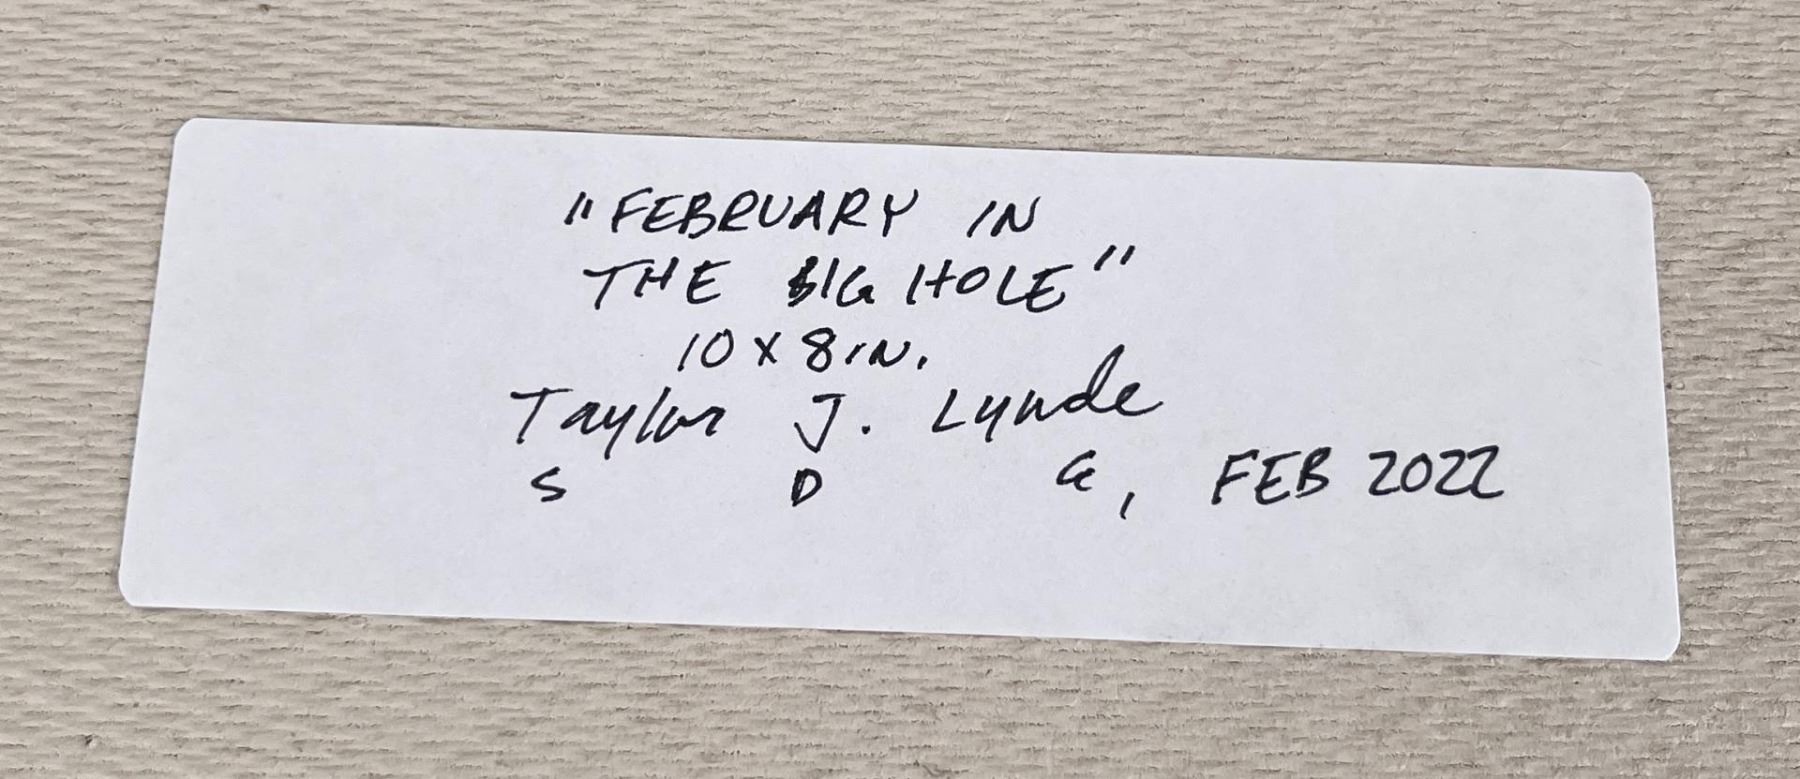 "FEBRUARY IN
THE BIG HOLE"
10 x 8 IN.
Taylor J. Lynde
S D G, FEB 2022